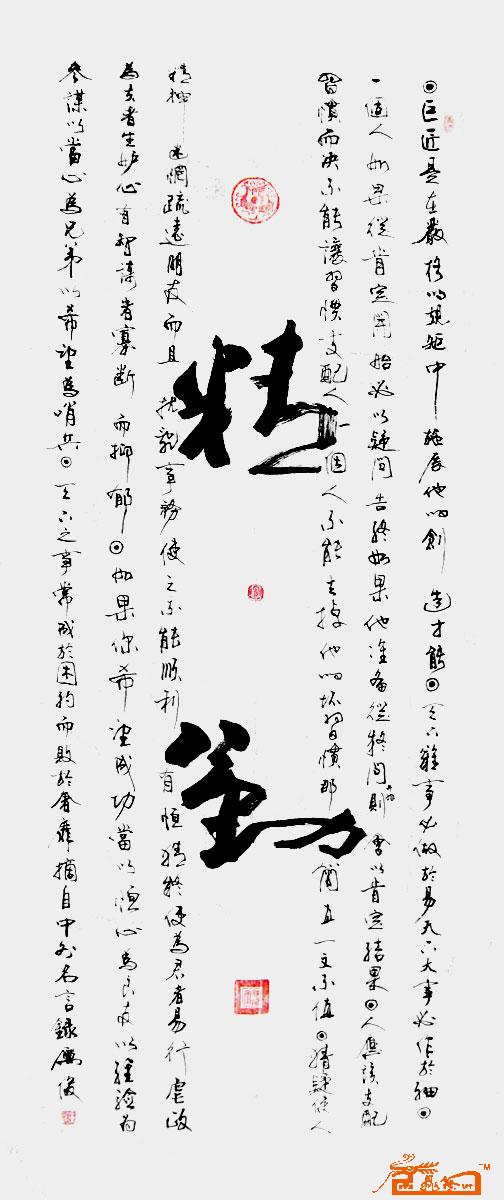 ⊙巨匠是在嚴格的規矩中施展他的創造才能⊙天下難事必做於易天下大事必作於細⊙
一個人如果從肯定開始必以疑問告終如果他准備從疑問則會以肯定結果⊙人應該支配
習慣而決不能讓習慣支配人一個人不能去掉他的坏習慣那簡直一文不值⊙猜疑使人
精勤
精神迷惘疏遠朋友而且扰亂事務使之不能順利有恒猜疑使為君者易行虐政
為夫者生妒心有智謀者寡斷而抑郁⊙如果你希望成功當以恒心為良友以經驗為
參謀以當心為兄弟以希望為哨兵⊙天下之事常成於困約而敗於奢靡摘自中外名言錄